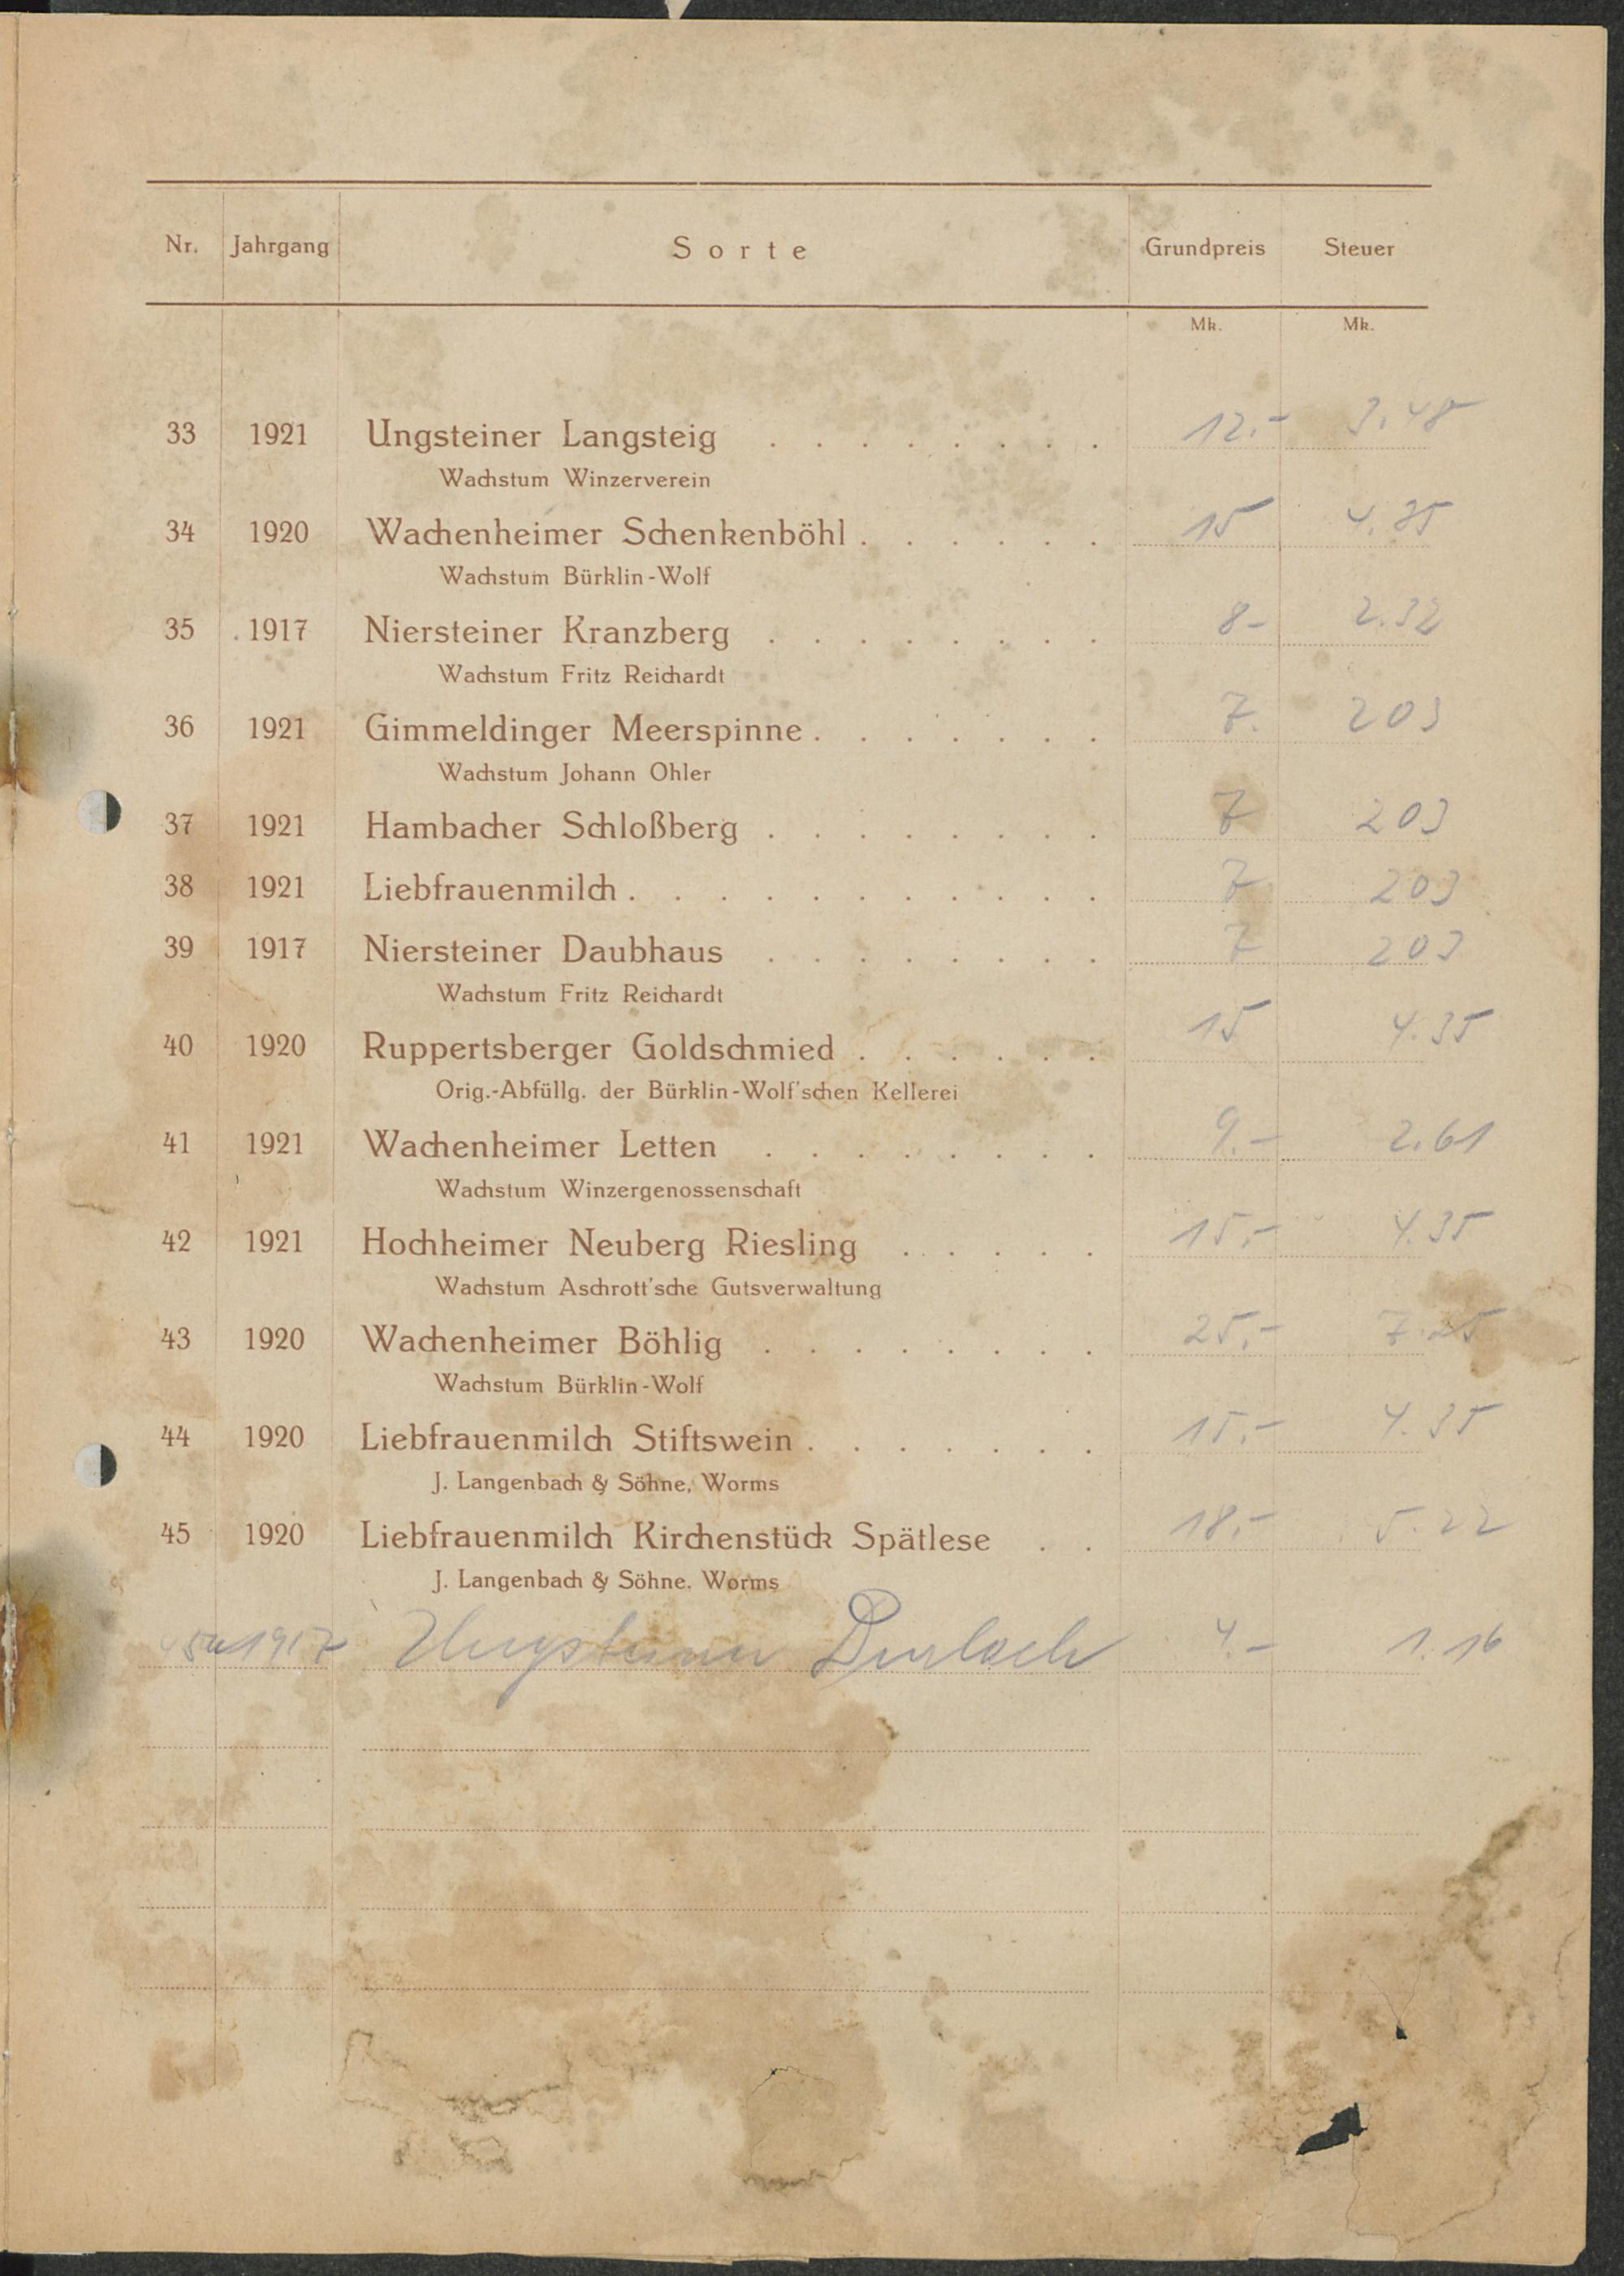 Nr. Jahrgang Sorte Grundpreis Steuer
Mk. Mk.
33 1921 Ungsteiner Langsteig . . . . . . . . 12.- 3.48
Wachstum Winzerverein
34 1920 Wachenheimer Schenkenböhl . . . . . . 15 4.35
Wachstum Bürklin-Wolf
35 1917 Niersteiner Kranzberg . . . . . . . . 8- 2.32
Wachstum Fritz Reichardt
36 1921 Gimmeldinger Meerspinne . . . . . . . 7. 203
Wachstum Johann Ohler
37 1921 Hambacher Schloßberg . . . . . . . . 7 203
38 1921 Liebfrauenmilch . . . . . . . . . . . 7 203
39 1917 Niersteiner Daubhaus . . . . . . . . 7 203
Wachstum Fritz Reichardt
40 1920 Ruppertsberger Goldschmied . . . . . . 15 4.35
Orig.-Abfüllg. der Bürklin-Wolf'schen Kellerei
41 1921 Wachenheimer Letten . . . . . . . . 9.- 2.61
Wachstum Winzergenossenschaft
42 1921 Hochheimer Neuberg Riesling . . . . . 15.- 4.35
Wachstum Aschrott'sche Gutsverwaltung
43 1920 Wachenheimer Böhlig . . . . . . . . 25.- 7.25
Wachstum Bürklin-Wolf
44 1920 Liebfrauenmilch Stiftswein . . . . . . . 15.- 4.35
J. Langenbach & Söhne, Worms
45 1920 Liebfrauenmilch Kirchenstück Spätlese . . 18.- 5.22
J. Langenbach & Söhne. Worms
45a 1917 4.- 1.16